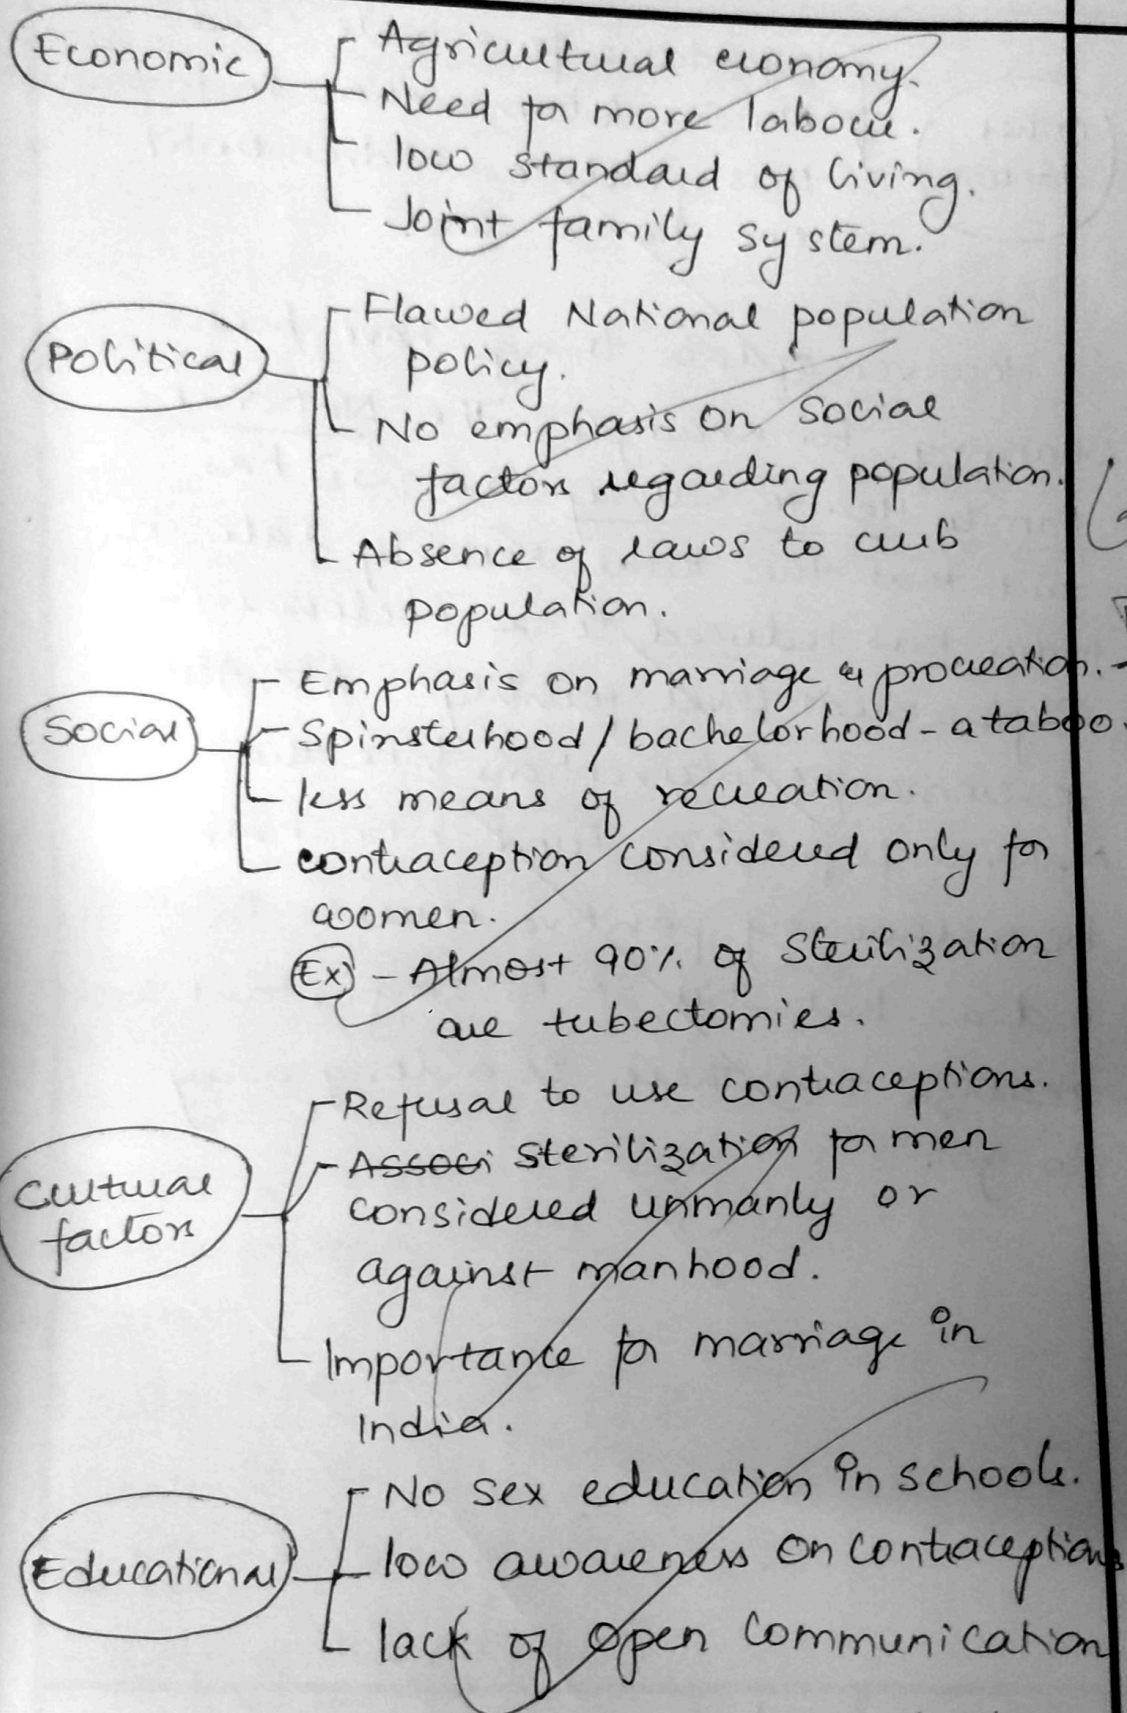 Economic
Agricultural economy.
Need for more labour.
low standard of living.
Joint family system.
Political
Flawed National population
policy.
No emphasis on social
factors regarding population.
Absence of laws to curb
population.
Social
Emphasis on marriage & procreation.
Spinsterhood / bachelorhood - a taboo.
less means of recreation.
contraception considered only for
women.
Ex - Almost 90% of Sterilization
are tubectomies.
Cultural
factors
Refusal to use contraceptions.
Associ Sterilization for men
considered unmanly or
against manhood.
Importance for marriage in
India.
Educational
No sex education in schools.
low awareness on contraceptions
lack of open communication